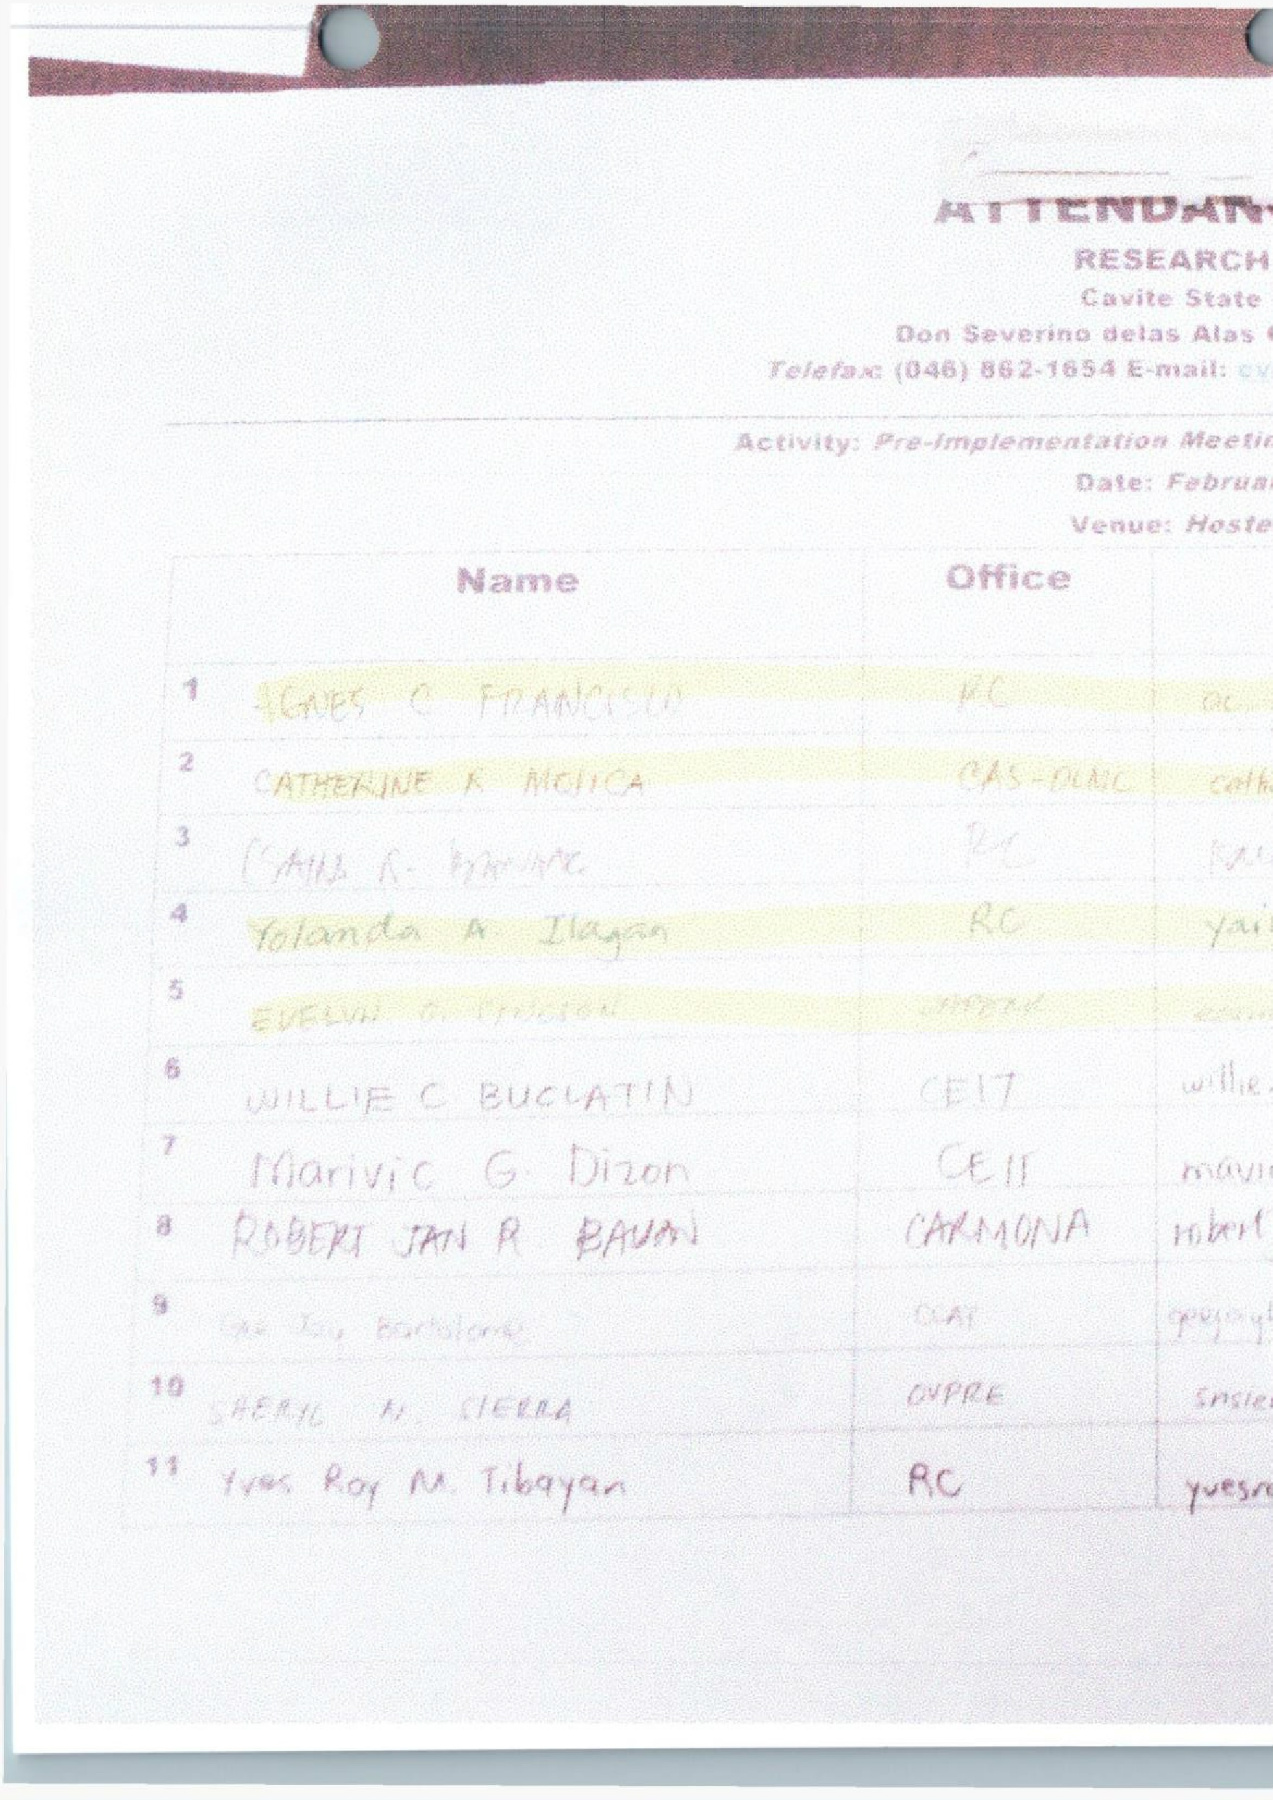 ATTENDAN
RESEARCH
Cavite State
Don Severino delas Alas
Telefax: (046) 862-1654 E-mail: cv
Activity: Pre-Implementation Meetin
Date: Februar
Venue: Hoste
Name Office
1 AGNES C FRANCISCO RC
2 CATHERINE R MOJICA CAS- cath
3 R. RC
4 Yolanda A Ilagan RC yail
5 EVELYN O.
6 WILLIE C BUCLATIN CEIT willie.
7 Marivic G. Dizon CEIT mavi
8 ROBERT JAN R BAUAN CARMONA robert
9 Jay Bartolome
10 SHERYL N. SIERRA OVPRE snsie
11 Yves Roy M. Tibayan RC yvesro